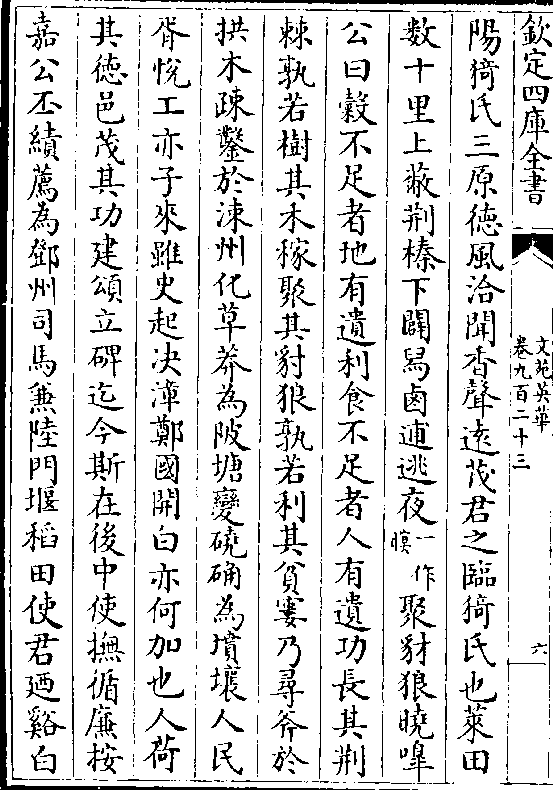 欽定四庫全書
文苑英華
卷九百二十三
六
陽猗氏三原徳風洽聞香聲逺茂君之臨猗氏也萊田
数十里上蔽荆榛下闢舄鹵逋逃夜一作暝聚豺狼曉嘷
公曰穀不足者地有遺利食不足者人有遺功長其荆
棘孰若樹其木稼聚其豺狼孰若利其貧窶乃尋斧於
拱木疎鑿於涑州化草莽為陂塘變磽确為墳壤人民
胥悅工亦子來雖史起决漳鄭國開白亦何加也人荷
其徳邑茂其功建頌立碑迄今斯在後中使撫循廉按
嘉公丕績薦為鄧州司馬兼陸門堰稻田使君廼谿白